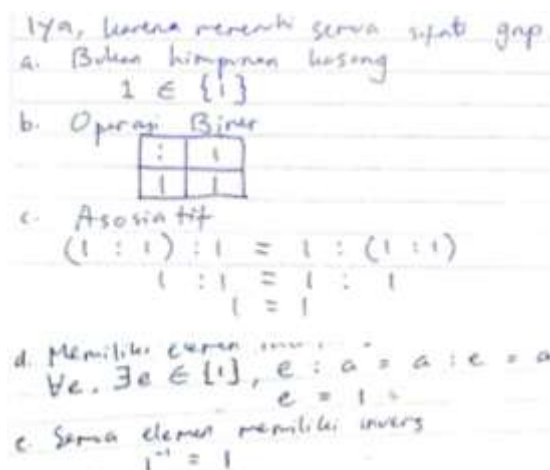 Iya, karena memenuhi semua sifat grup
a. Bukan himpunan kosong
1 ∈ {1}
b. Operasi Biner
: 1
1 1
c. Asosiatif
(1 : 1) : 1 = 1 : (1 : 1)
1 : 1 = 1 : 1
1 = 1
d. Memiliki elemen
∀e. ∃e ∈ {1}, e : a = a : e = a
e = 1
e. Semua elemen memiliki invers
1⁻¹ = 1